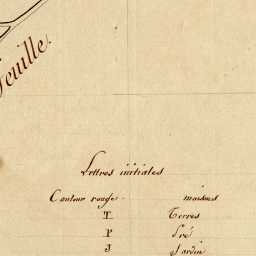 feuille.
Lettres initiales
Contour rouge maisons
T Terres
P Pré
J Jardin